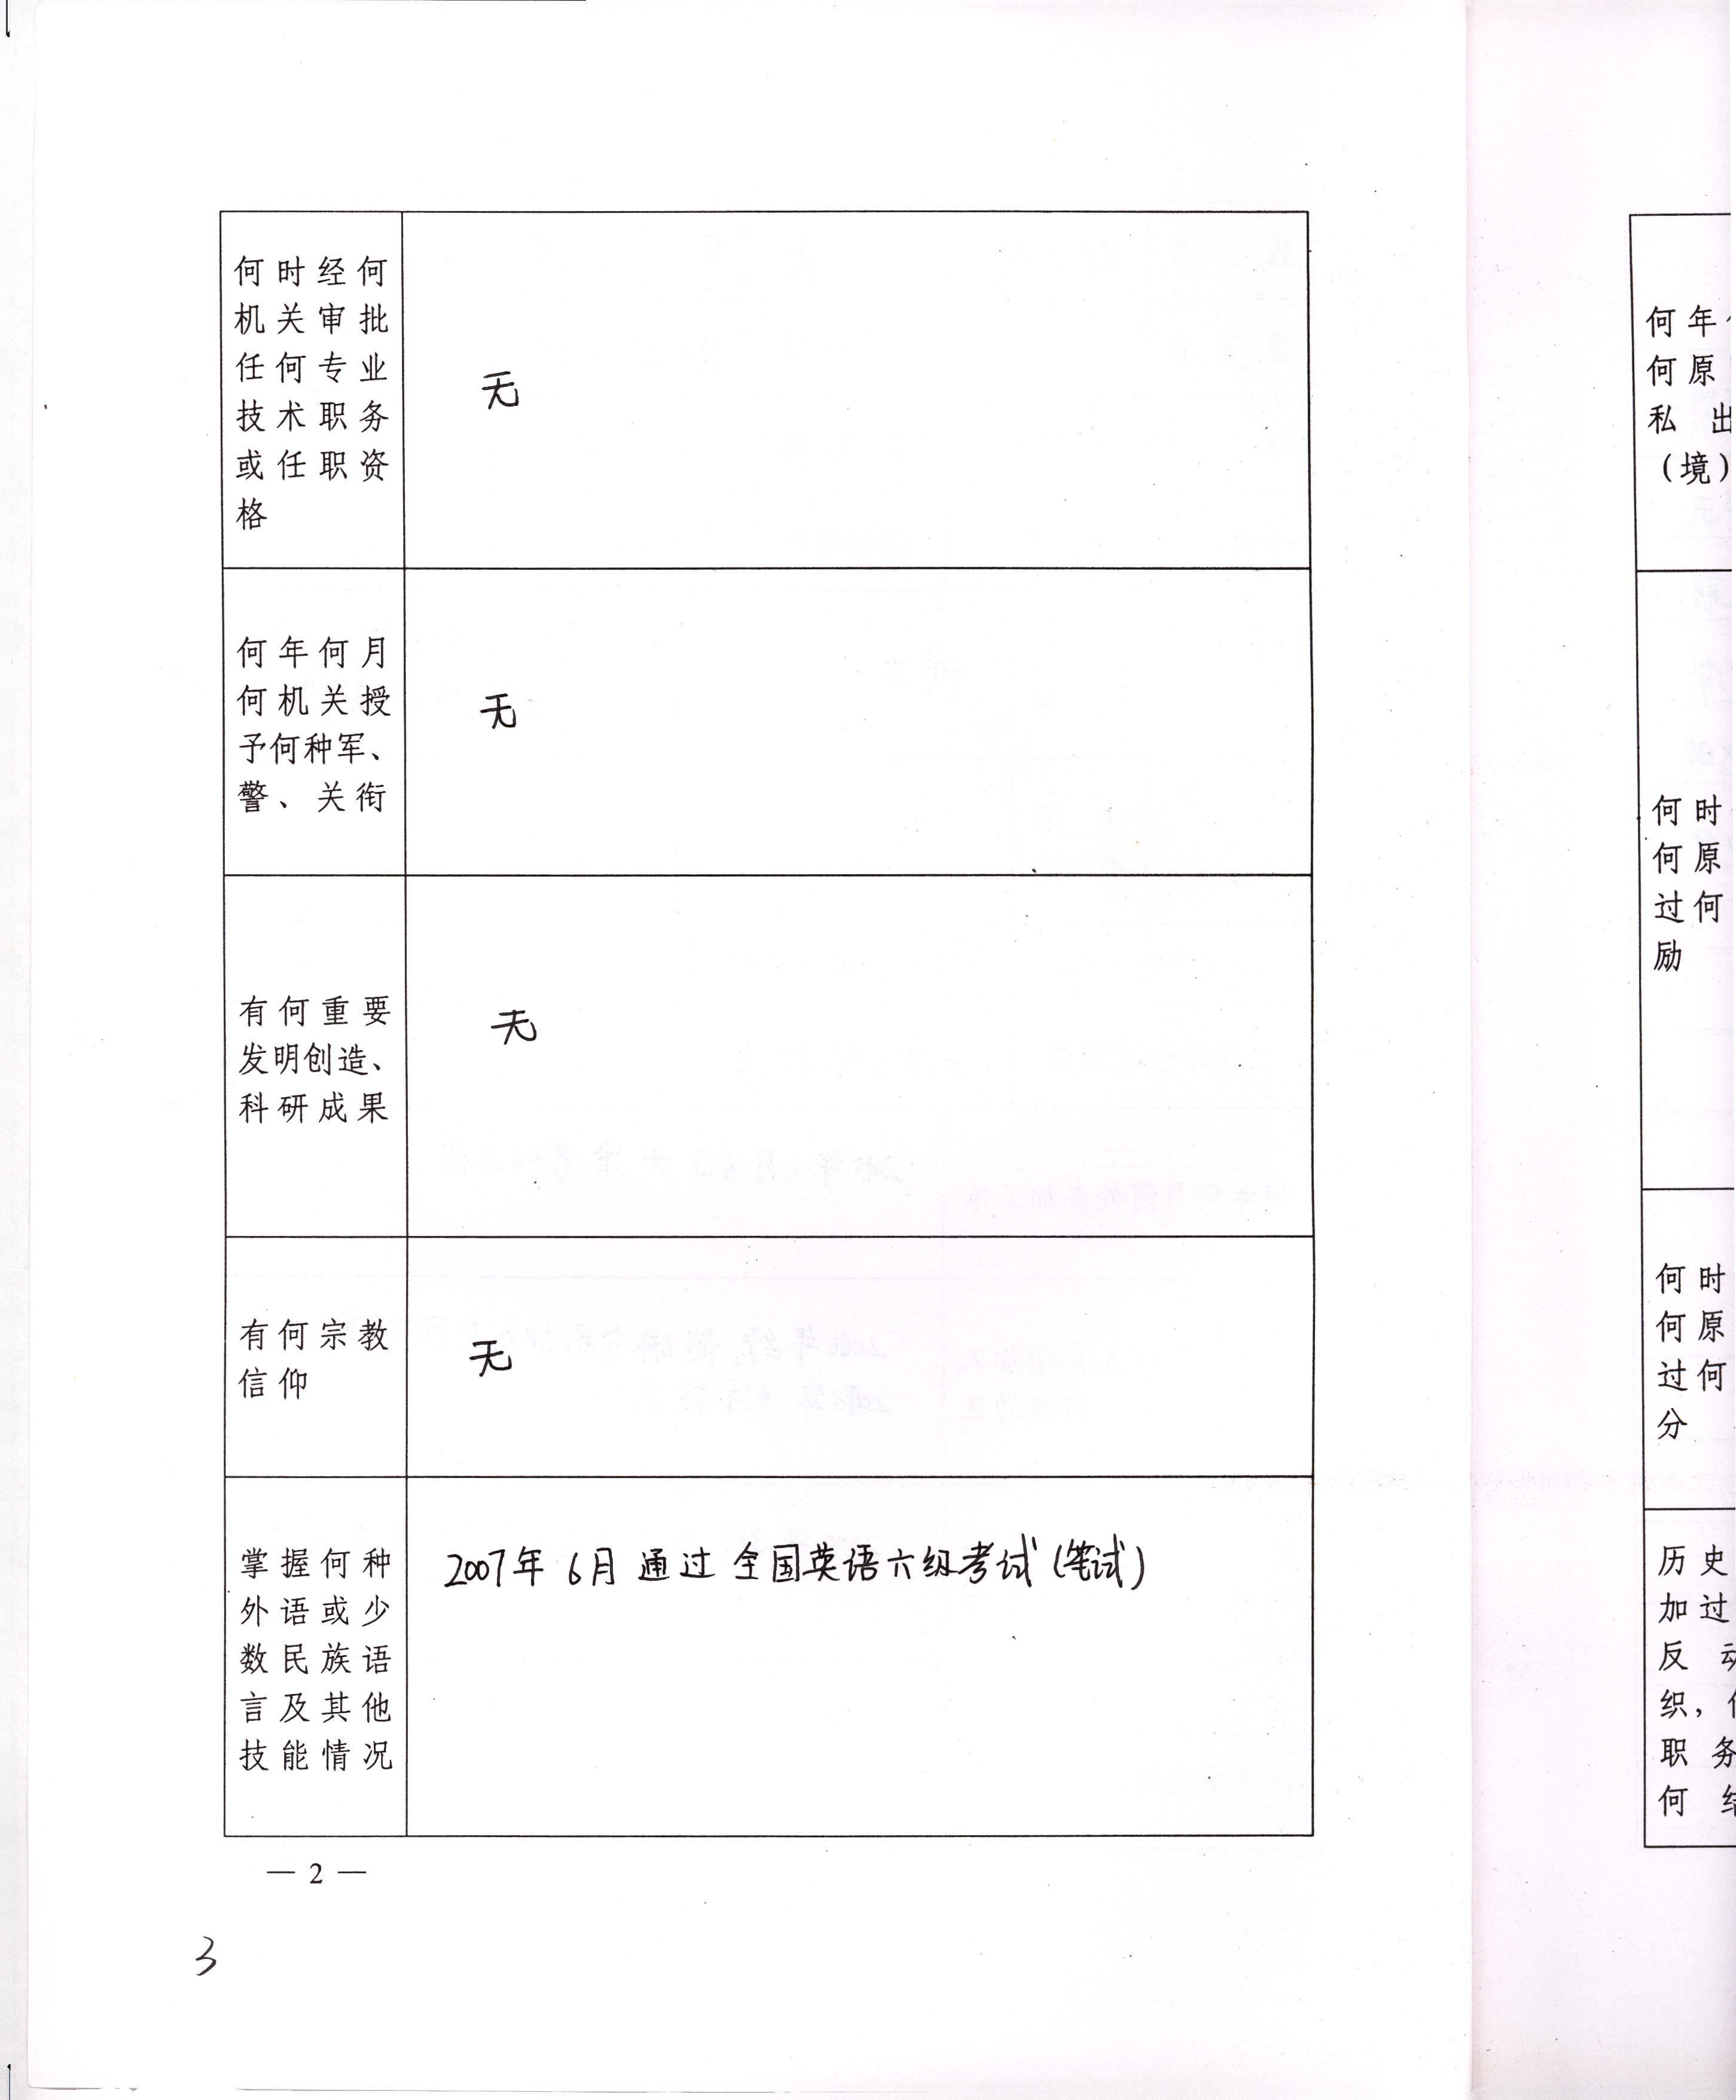 何时经何
机关审批
任何专业
技术职务
或任职资
格
无
何年何月
何机关授
予何种军、
警、关衔
无
有何重要
发明创造、
科研成果
无
有何宗教
信仰
无
掌握何种
外语或少
数民族语
言及其他
技能情况
2007年6月通过全国英语六级考试(笔试)
— 2 —
3
何年
何原
私出
(境)
何时
何原
过何
励
何时
何原
过何
分
历史
加过
反动
织,
职务
何结